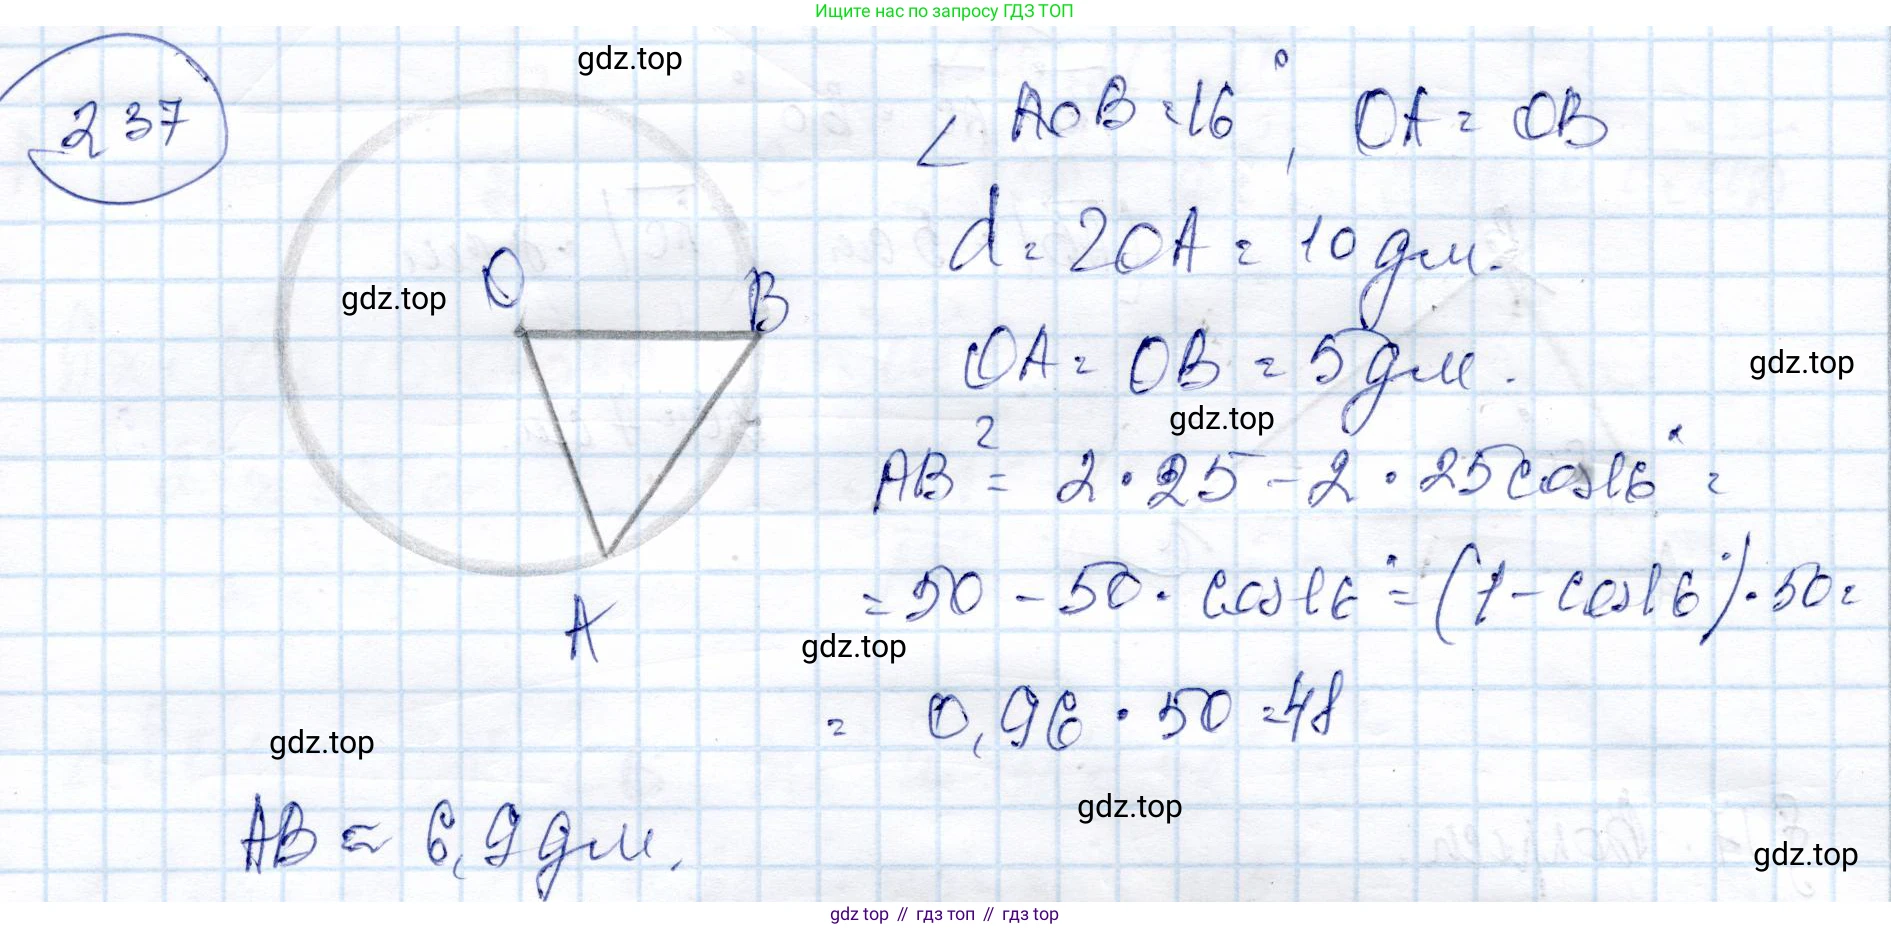 Ищите нас по запросу ГДЗ ТОП
gdz.top
237
∠ AOB = 16°, OA = OB
d = 2OA = 10 дм.
O
B
gdz.top
OA = OB = 5 дм.
gdz.top
gdz.top
AB² = 2 · 25 - 2 · 25 cos16° =
= 50 - 50 · cos16° = (1 - cos16°) · 50 =
A
gdz.top
= 0,96 · 50 = 48
gdz.top
gdz.top
AB ≈ 6,9 дм.
gdz.top
gdz top // гдз топ // гдз top